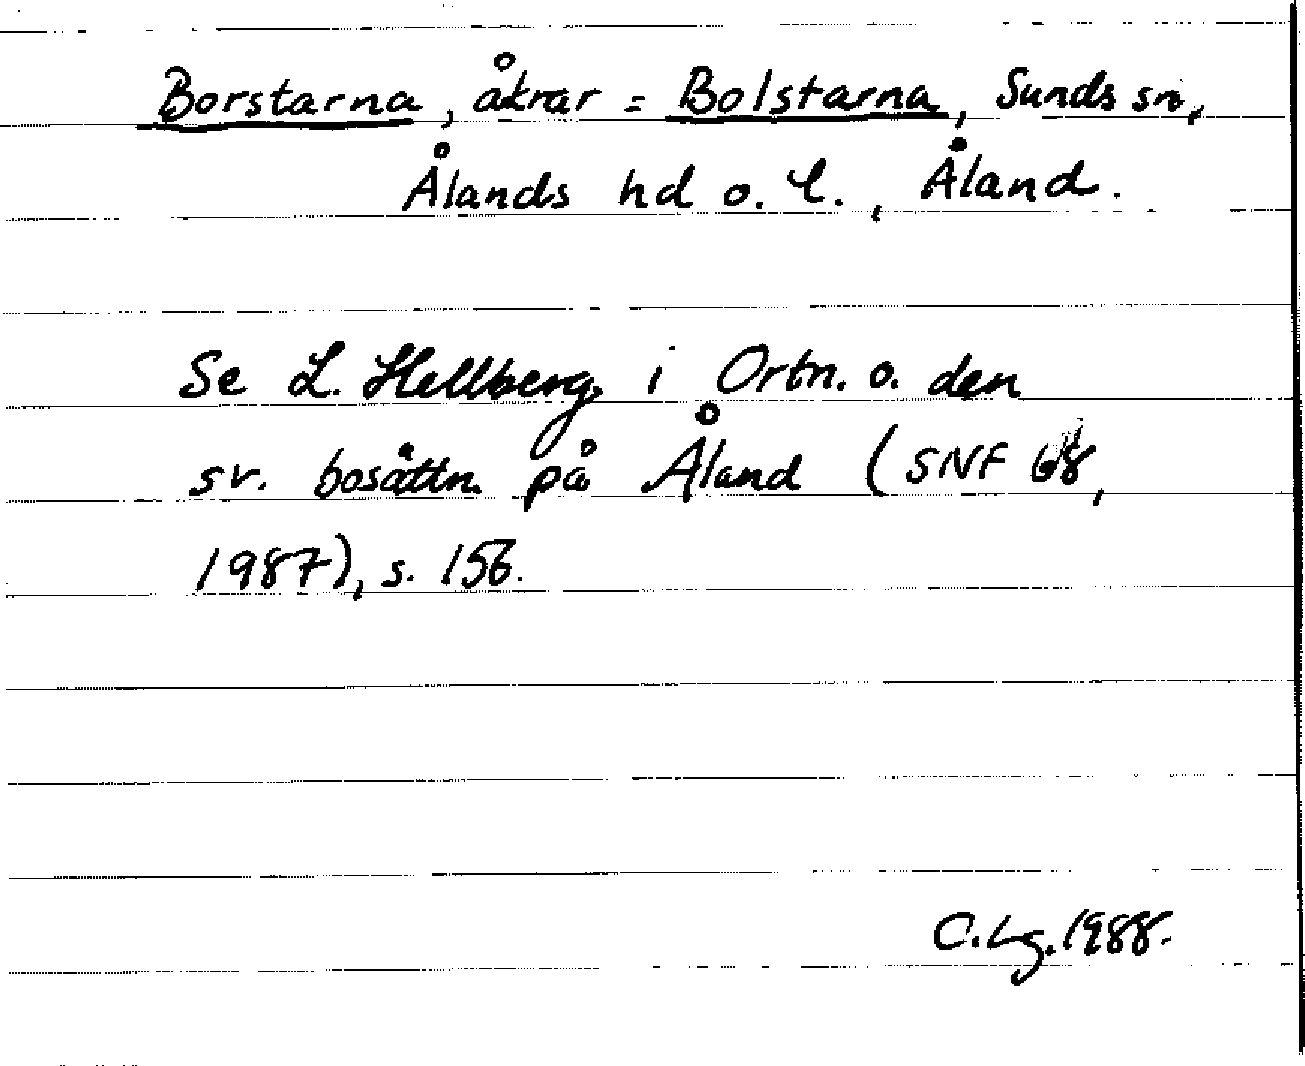 Borstarna, åkrar = Bolstarna, Sunds sn,
Ålands hd o. l., Åland.
Se L. Hellberg i Ortn. o. den
sv. bosättn. på Åland (SNF 68,
1987), s. 156.
C. Lg. 1988.